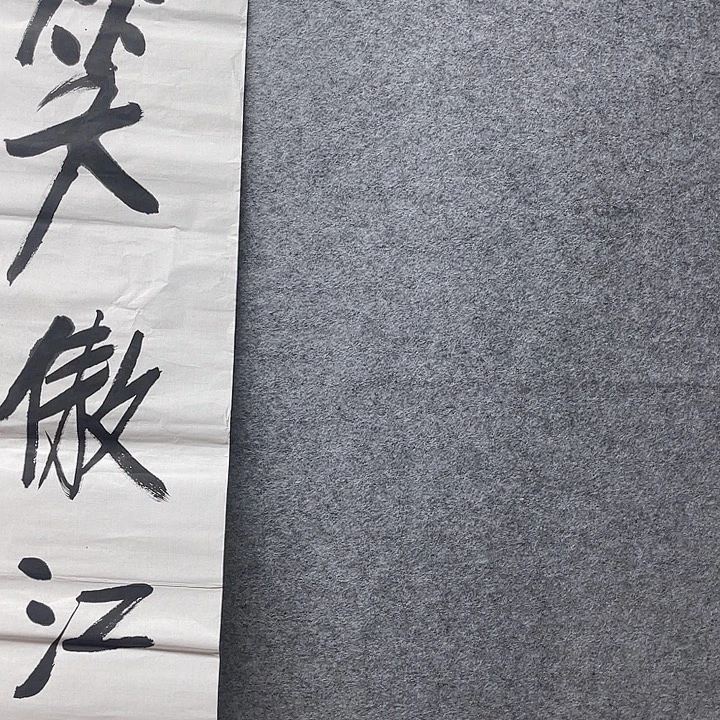 笑傲江